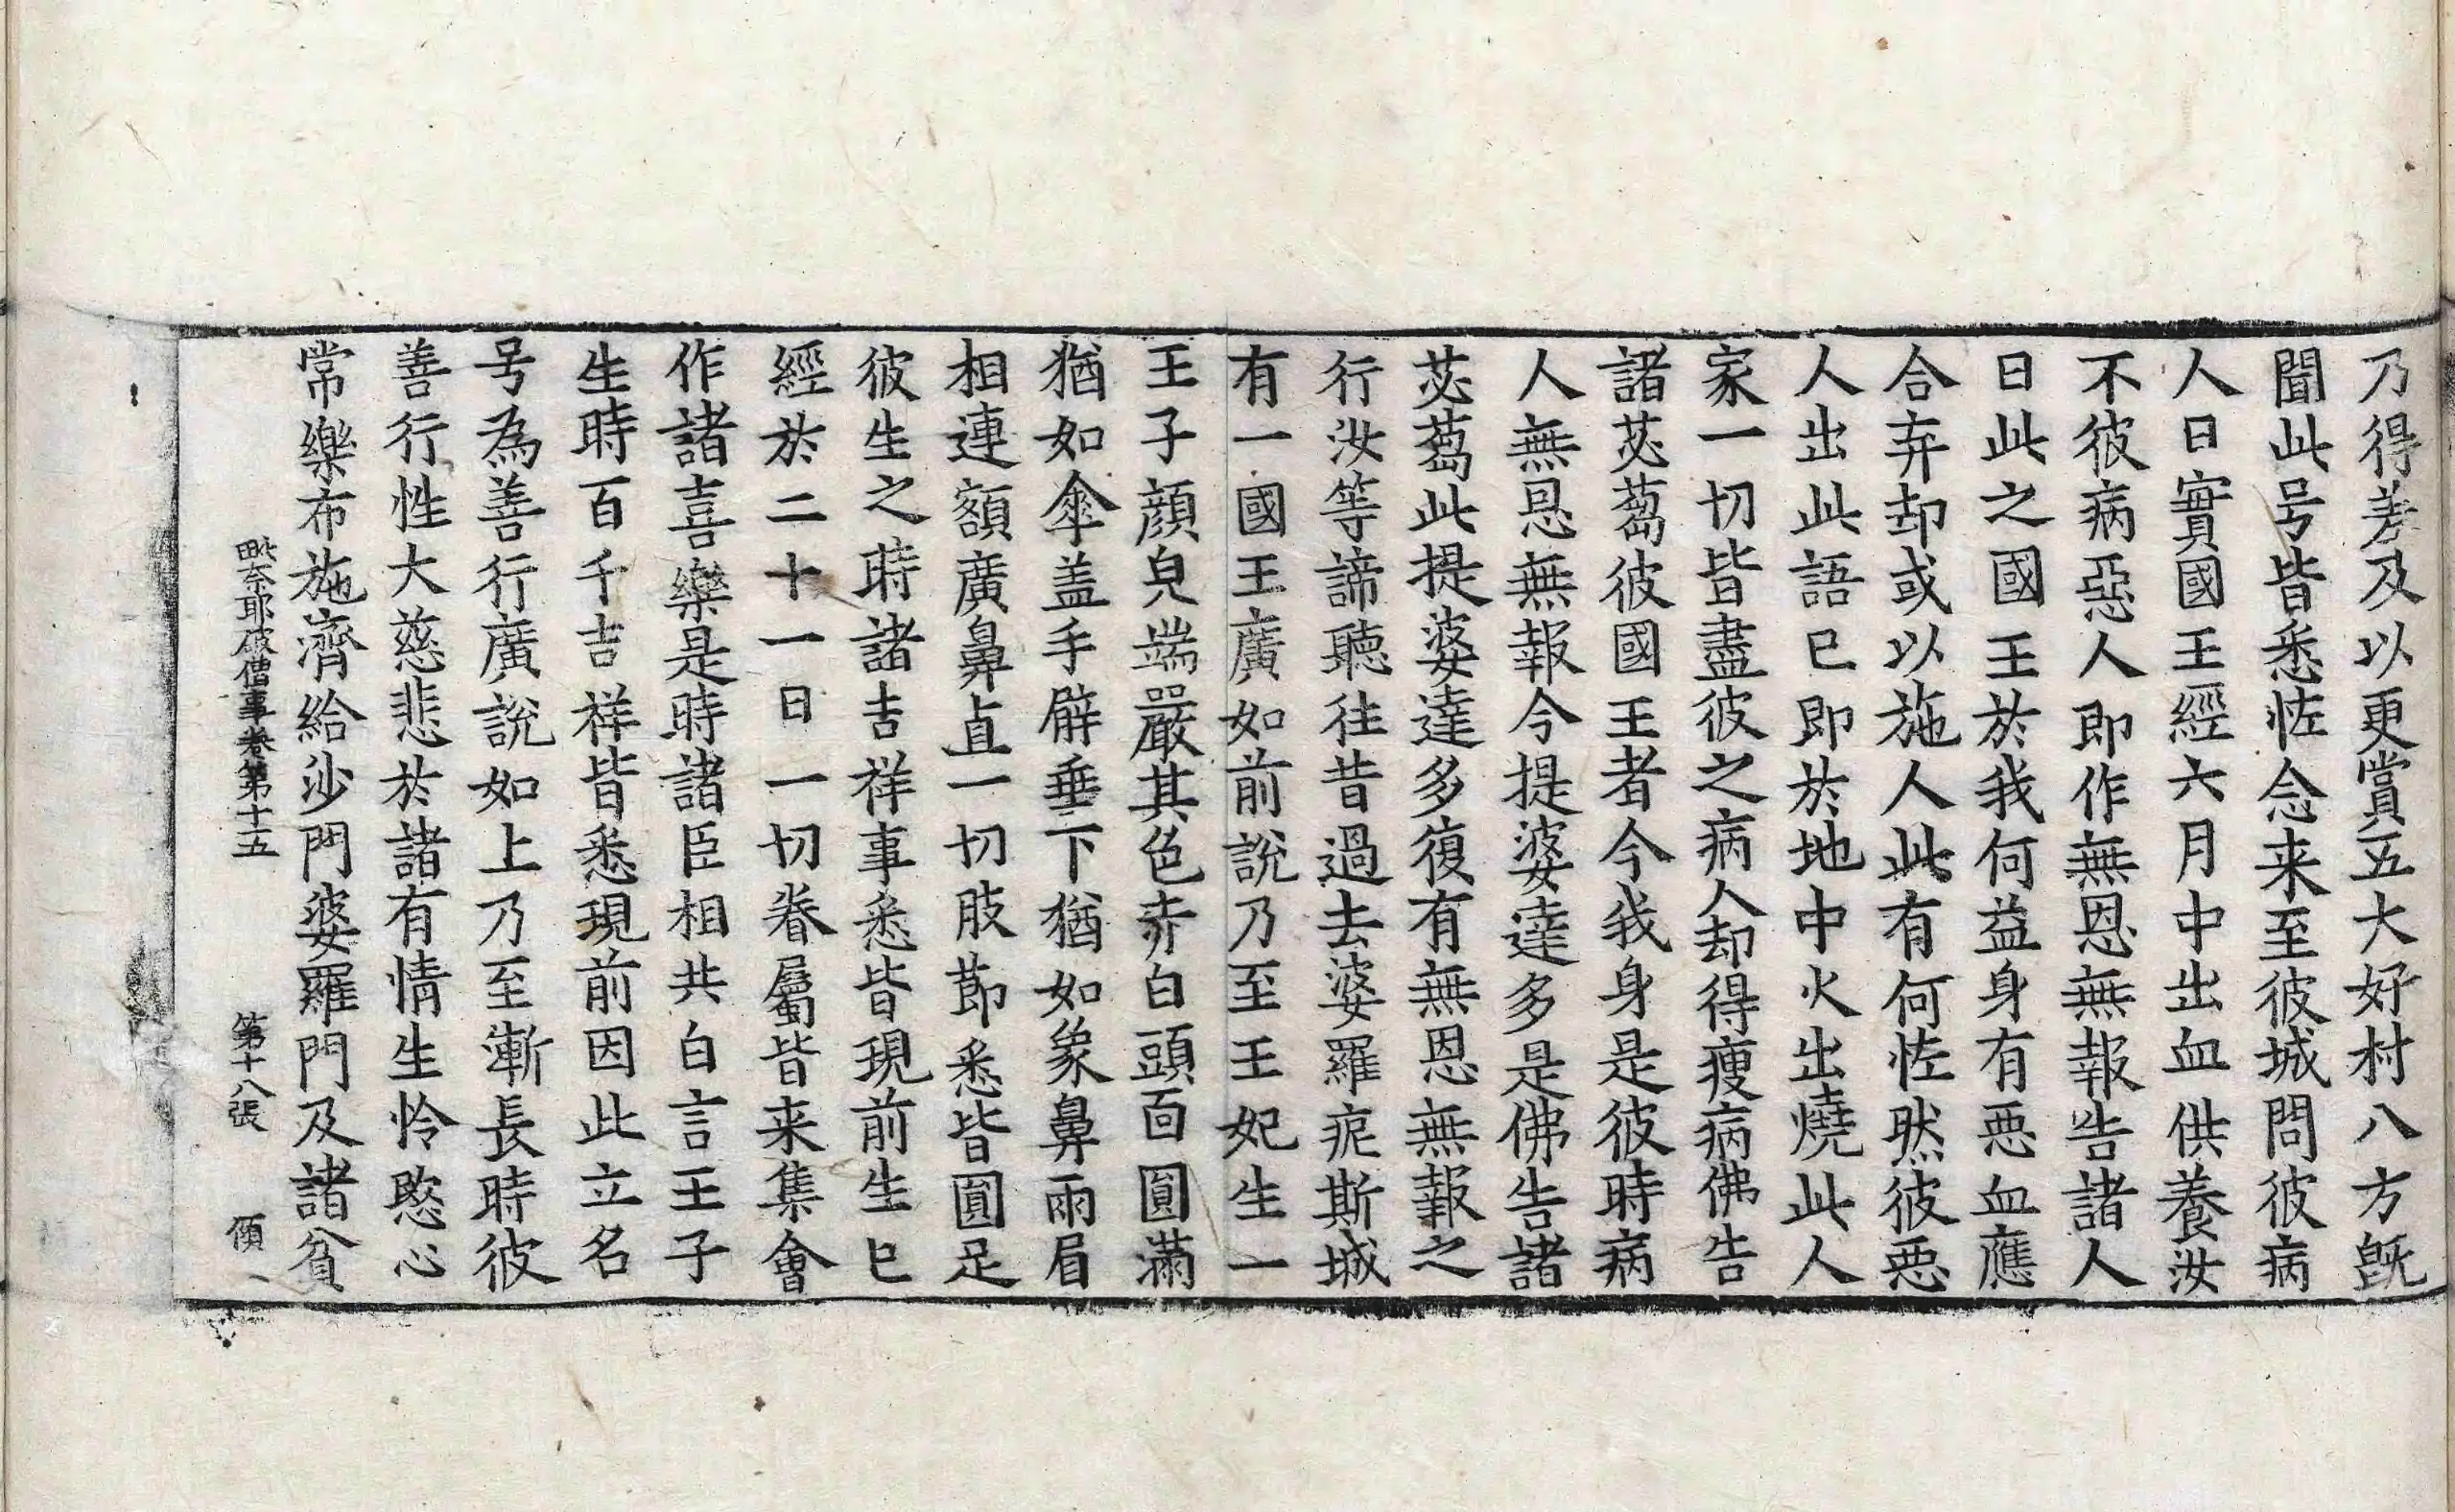 乃得差及以更賞五大好村八方旣
聞此号皆悉恠念来至彼城問彼病
人曰實國王經六月中出血供養汝
不彼病惡人即作無恩無報告諸人
曰此之國王於我何益身有惡血應
合弃却或以施人此有何恠然彼惡
人出此語已即於地中火出燒此人
家一切皆盡彼之病人却得瘦病佛告
諸苾蒭彼國王者今我身是彼時病
人無恩無報今提婆達多是佛告諸
苾蒭此提婆達多復有無恩無報之
行汝等諦聽往昔過去婆羅痆斯城
有一國王廣如前說乃至王妃生一
王子顔皃端嚴其色赤白頭面圓滿
猶如傘盖手臂垂下猶如象鼻兩眉
相連額廣鼻直一切肢節悉皆圓足
彼生之時諸吉祥事悉皆現前生已
經於二十一日一切眷屬皆来集會
作諸喜樂是時諸臣相共白言王子
生時百千吉祥皆悉現前因此立名
号為善行廣說如上乃至漸長時彼
善行性大慈悲於諸有情生怜愍心
常樂布施濟給沙門婆羅門及諸貧
毗奈耶破僧事卷第十五 第十八張 傾